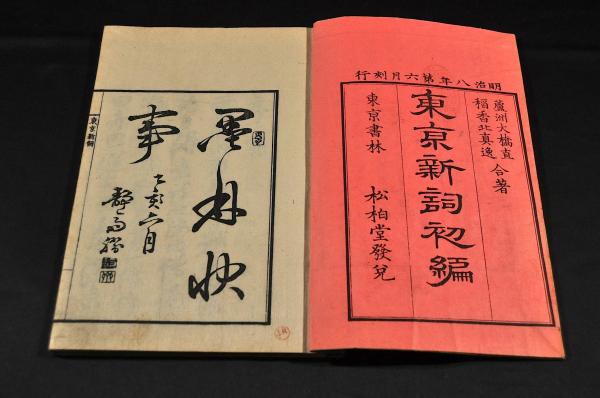 明治八年第六月刻行
蘆洲大橋直
稻香北真逸 合著
東京新詞初編
東京書林 松柏堂發兌
墨丹快
事
乙亥六月
東京新詞